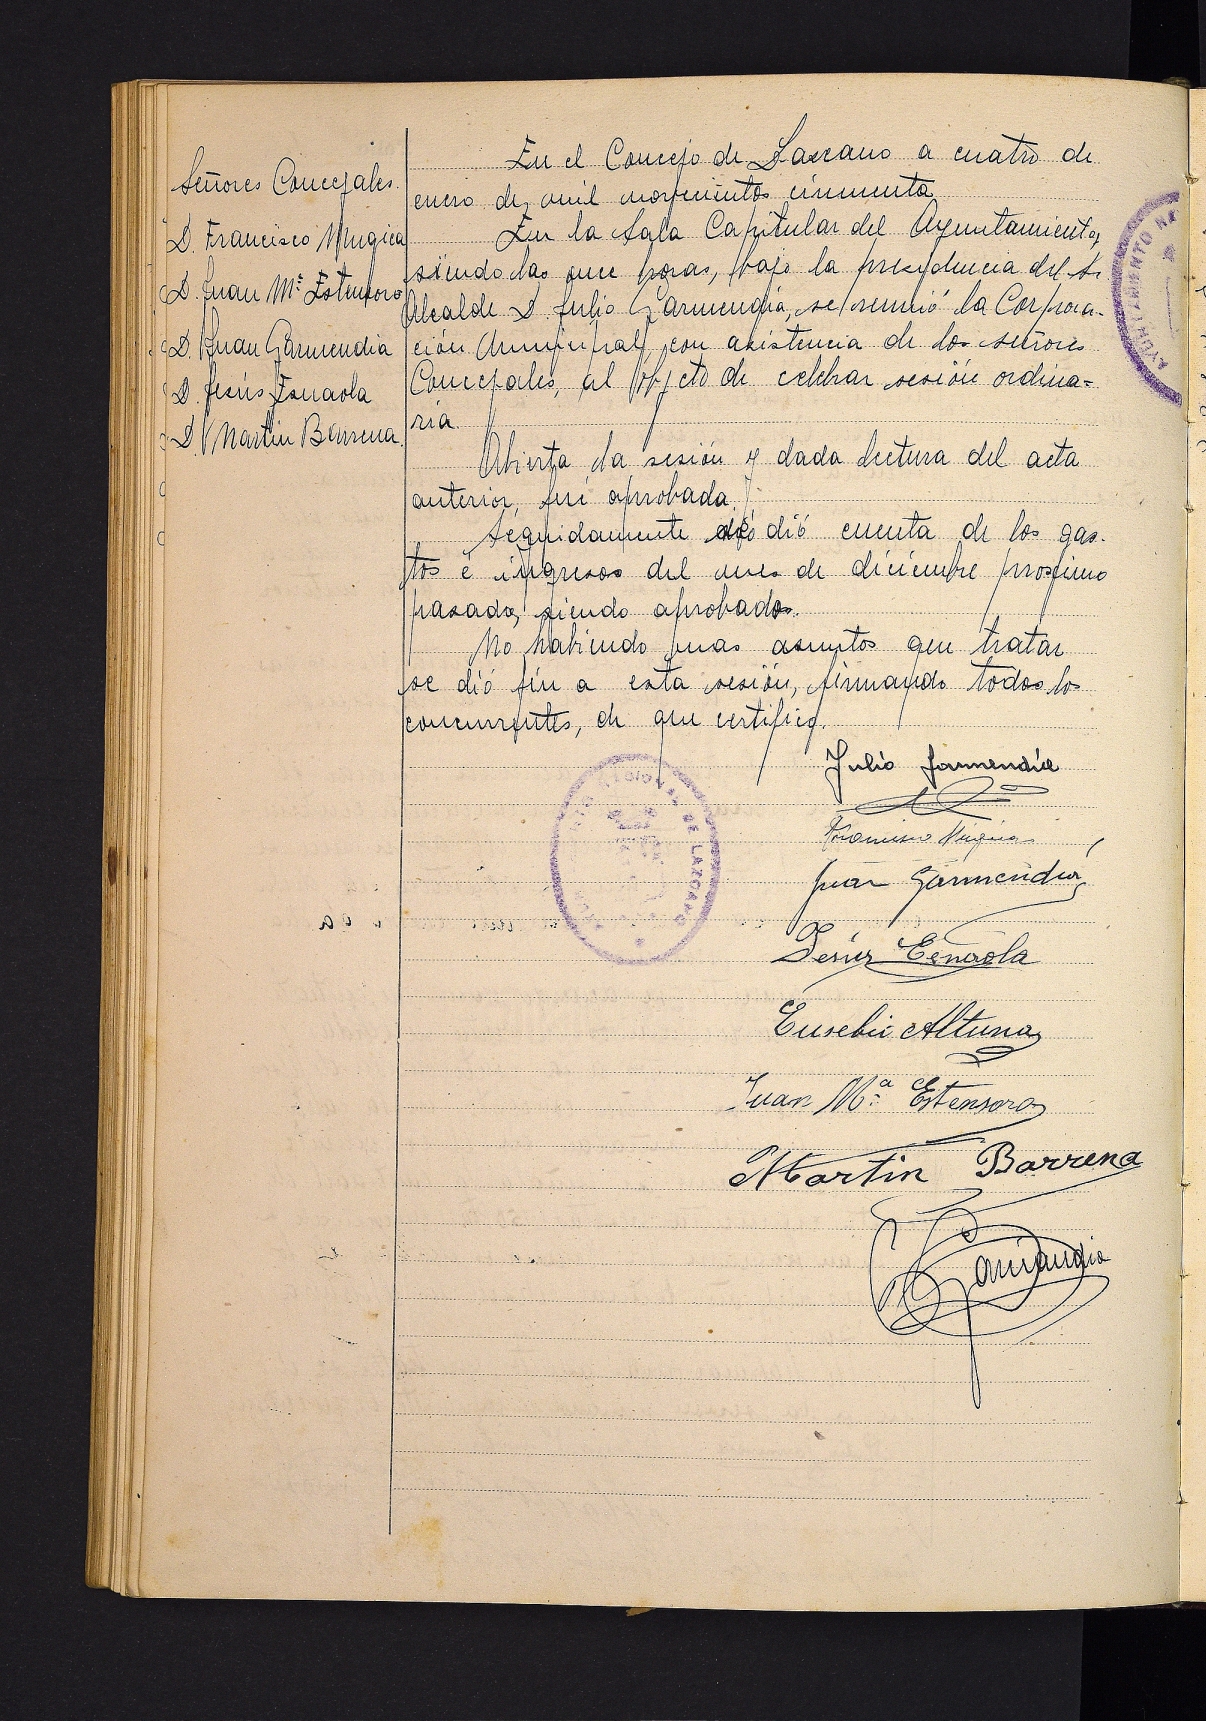 Señores Concejales.
D. Francisco Mugica
D. Juan Mª Estensoro
D. Juan Garmendia
D. Jesús Esnaola
D. Martin Barrena.
En el Concejo de Lazcano a cuatro de
enero de mil novecientos cincuenta
En la Sala Capitular del Ayuntamiento,
siendo las once horas, bajo la presidencia del Sr.
Alcalde D. Julio Garmendia, se reunió la Corpora-
ción Municipal, con asistencia de los señores
Concejales, al objeto de celebrar sesión ordina=
ria.
Abierta la sesión y dada lectura del acta
anterior, fué aprobada.
Seguidamente dió cuenta de los gas-
tos é ingresos del mes de diciembre proximo
pasado, siendo aprobados.
No habiendo mas asuntos que tratar
se dió fin a esta sesión, firmando todos los
concurrentes, de que certifico.
Julio Garmendia
Francisco Mugica
Juan Garmendia
Jesús Esnaola
Eusebio Altuna
Juan Mª Estensoro
Martin Barrena
DE LAZCANO
AYUNTAMIENTO